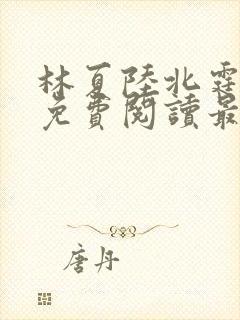 林夏陸北霆
免費閱讀最
唐丹